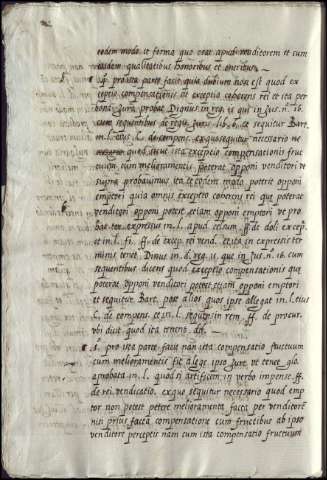 eodem modo et forma quo erat apud venditorem et cum
eisdem qualitatibus honoribus et oneribus
pro ista parte facit quia dubium non est quod ex
ceptio compensationis est exceptio rei et ita per
bona Jura probat Dinus in reg. in Jus. n. 16.
cum sequentibus de regu. Juris lib. 6. et sequitur Bart.
in l. eius C. de compens. ex quo sequitur necessario
quod ista exceptio compensationis fruc
tuum cum melioramentis poterat opponi venditori ut
supra probavimus ita et eodem modo poterit opponi
emptori quia omnis exceptio rei que poterat
venditori opponi potest etiam opponi emptori ut pro
bat in l. apud celsum ff. de doli excep.
et in l. fi. ff. de excep. rei vend. et ita in expressis ter
minis tenet Dinus in d. reg. in Jus. n. 16. cum
sequentibus dicens quod exceptio compensationis que
poterat opponi venditori potest etiam opponi emptori
et sequitur Bart. post alios quos ipse allegat in l. eius
C. de compens. et in l. ff. de procur.
ubi dicit quod ita tenent
pro ista parte facit nam ista compensatio fructuum
cum melioramentis fit a lege ipso Jure ut tenet glo.
aprobata in l. quod si artificem in verbo impense ff.
de rei vendicatio. ex quo sequitur necessario quod emp
tor non potest petere melioramenta facta per venditore
nisi prius facta compensatione cum fructibus ab ipso
venditore perceptis nam cum ista compensatio fructuum